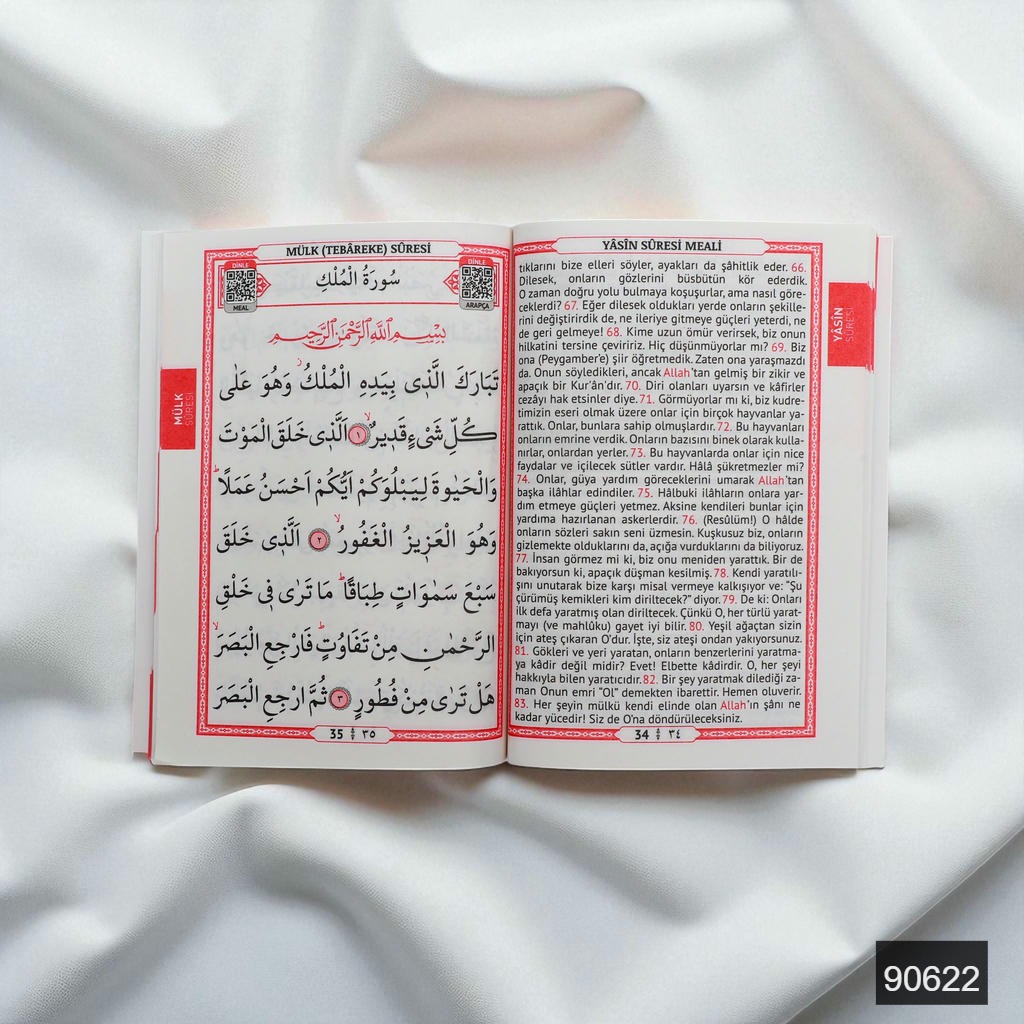 YÂSÎN SÛRESİ MEALİ
tıklarını bize elleri söyler, ayakları da şâhitlik eder. 66.
Dilesek, onların gözlerini büsbütün kör ederdik.
O zaman doğru yolu bulmaya koşuşurlar, ama nasıl göre-
ceklerdi? 67. Eğer dilesek oldukları yerde onların şekille-
rini değiştirirdik de, ne ileriye gitmeye güçleri yeterdi, ne
de geri gelmeye! 68. Kime uzun ömür verirsek, biz onun
hilkatini tersine çeviririz. Hiç düşünmüyorlar mı? 69. Biz
ona (Peygamber'e) şiir öğretmedik. Zaten ona yaraşmazdı
da. Onun söyledikleri, ancak Allah'tan gelmiş bir zikir ve
apaçık bir Kur'ân'dır. 70. Diri olanları uyarsın ve kâfirler
cezâyı hak etsinler diye. 71. Görmüyorlar mı ki, biz kudre-
timizin eseri olmak üzere onlar için birçok hayvanlar ya-
rattık. Onlar, bunlara sahip olmuşlardır. 72. Bu hayvanları
onların emrine verdik. Onların bazısını binek olarak kulla-
nırlar, onlardan yerler. 73. Bu hayvanlarda onlar için nice
faydalar ve içilecek sütler vardır. Hâlâ şükretmezler mi?
74. Onlar, güya yardım göreceklerini umarak Allah'tan
başka ilâhlar edindiler. 75. Hâlbuki ilâhların onlara yar-
dım etmeye güçleri yetmez. Aksine kendileri bunlar için
yardıma hazırlanan askerlerdir. 76. (Resûlüm!) O hâlde
onların sözleri sakın seni üzmesin. Kuşkusuz biz, onların
gizlemekte olduklarını da, açığa vurduklarını da biliyoruz.
77. İnsan görmez mi ki, biz onu meniden yarattık. Bir de
bakıyorsun ki, apaçık düşman kesilmiş. 78. Kendi yaratılı-
şını unutarak bize karşı misal vermeye kalkışıyor ve: "Şu
çürümüş kemikleri kim diriltecek?" diyor. 79. De ki: Onları
ilk defa yaratmış olan diriltecek. Çünkü O, her türlü yarat-
mayı (ve mahlûku) gayet iyi bilir. 80. Yeşil ağaçtan sizin
için ateş çıkaran O'dur. İşte, siz ateşi ondan yakıyorsunuz.
81. Gökleri ve yeri yaratan, onların benzerlerini yaratma-
ya kâdir değil midir? Evet! Elbette kâdirdir. O, her şeyi
hakkıyla bilen yaratıcıdır. 82. Bir şey yaratmak dilediği za-
man Onun emri "Ol" demekten ibarettir. Hemen oluverir.
83. Her şeyin mülkü kendi elinde olan Allah'ın şânı ne
kadar yücedir! Siz de O'na döndürüleceksiniz.
34 ٣٤
YÂSÎN
SÛRESİ
MÜLK (TEBÂREKE) SÛRESİ
DİNLE
MEAL
سُورَةُ الْمُلْكِ
DİNLE
ARAPÇA
بِسْمِ اللّٰهِ الرَّحْمٰنِ الرَّحٖيمِ
تَبَارَكَ الَّذٖى بِيَدِهِ الْمُلْكُ وَهُوَ عَلٰى
كُلِّ شَیْءٍ قَدٖيرٌ ١ اَلَّذٖى خَلَقَ الْمَوْتَ
وَالْحَيٰوةَ لِيَبْلُوَكُمْ اَيُّكُمْ اَحْسَنُ عَمَلًا
وَهُوَ الْعَزٖيزُ الْغَفُورُ ٢ اَلَّذٖى خَلَقَ
سَبْعَ سَمٰوَاتٍ طِبَاقًا مَا تَرٰى فٖى خَلْقِ
الرَّحْمٰنِ مِنْ تَفَاوُتٍ فَارْجِعِ الْبَصَرَ
هَلْ تَرٰى مِنْ فُطُورٍ ٣ ثُمَّ ارْجِعِ الْبَصَرَ
35 ٣٥
MÜLK
SÛRESİ
90622